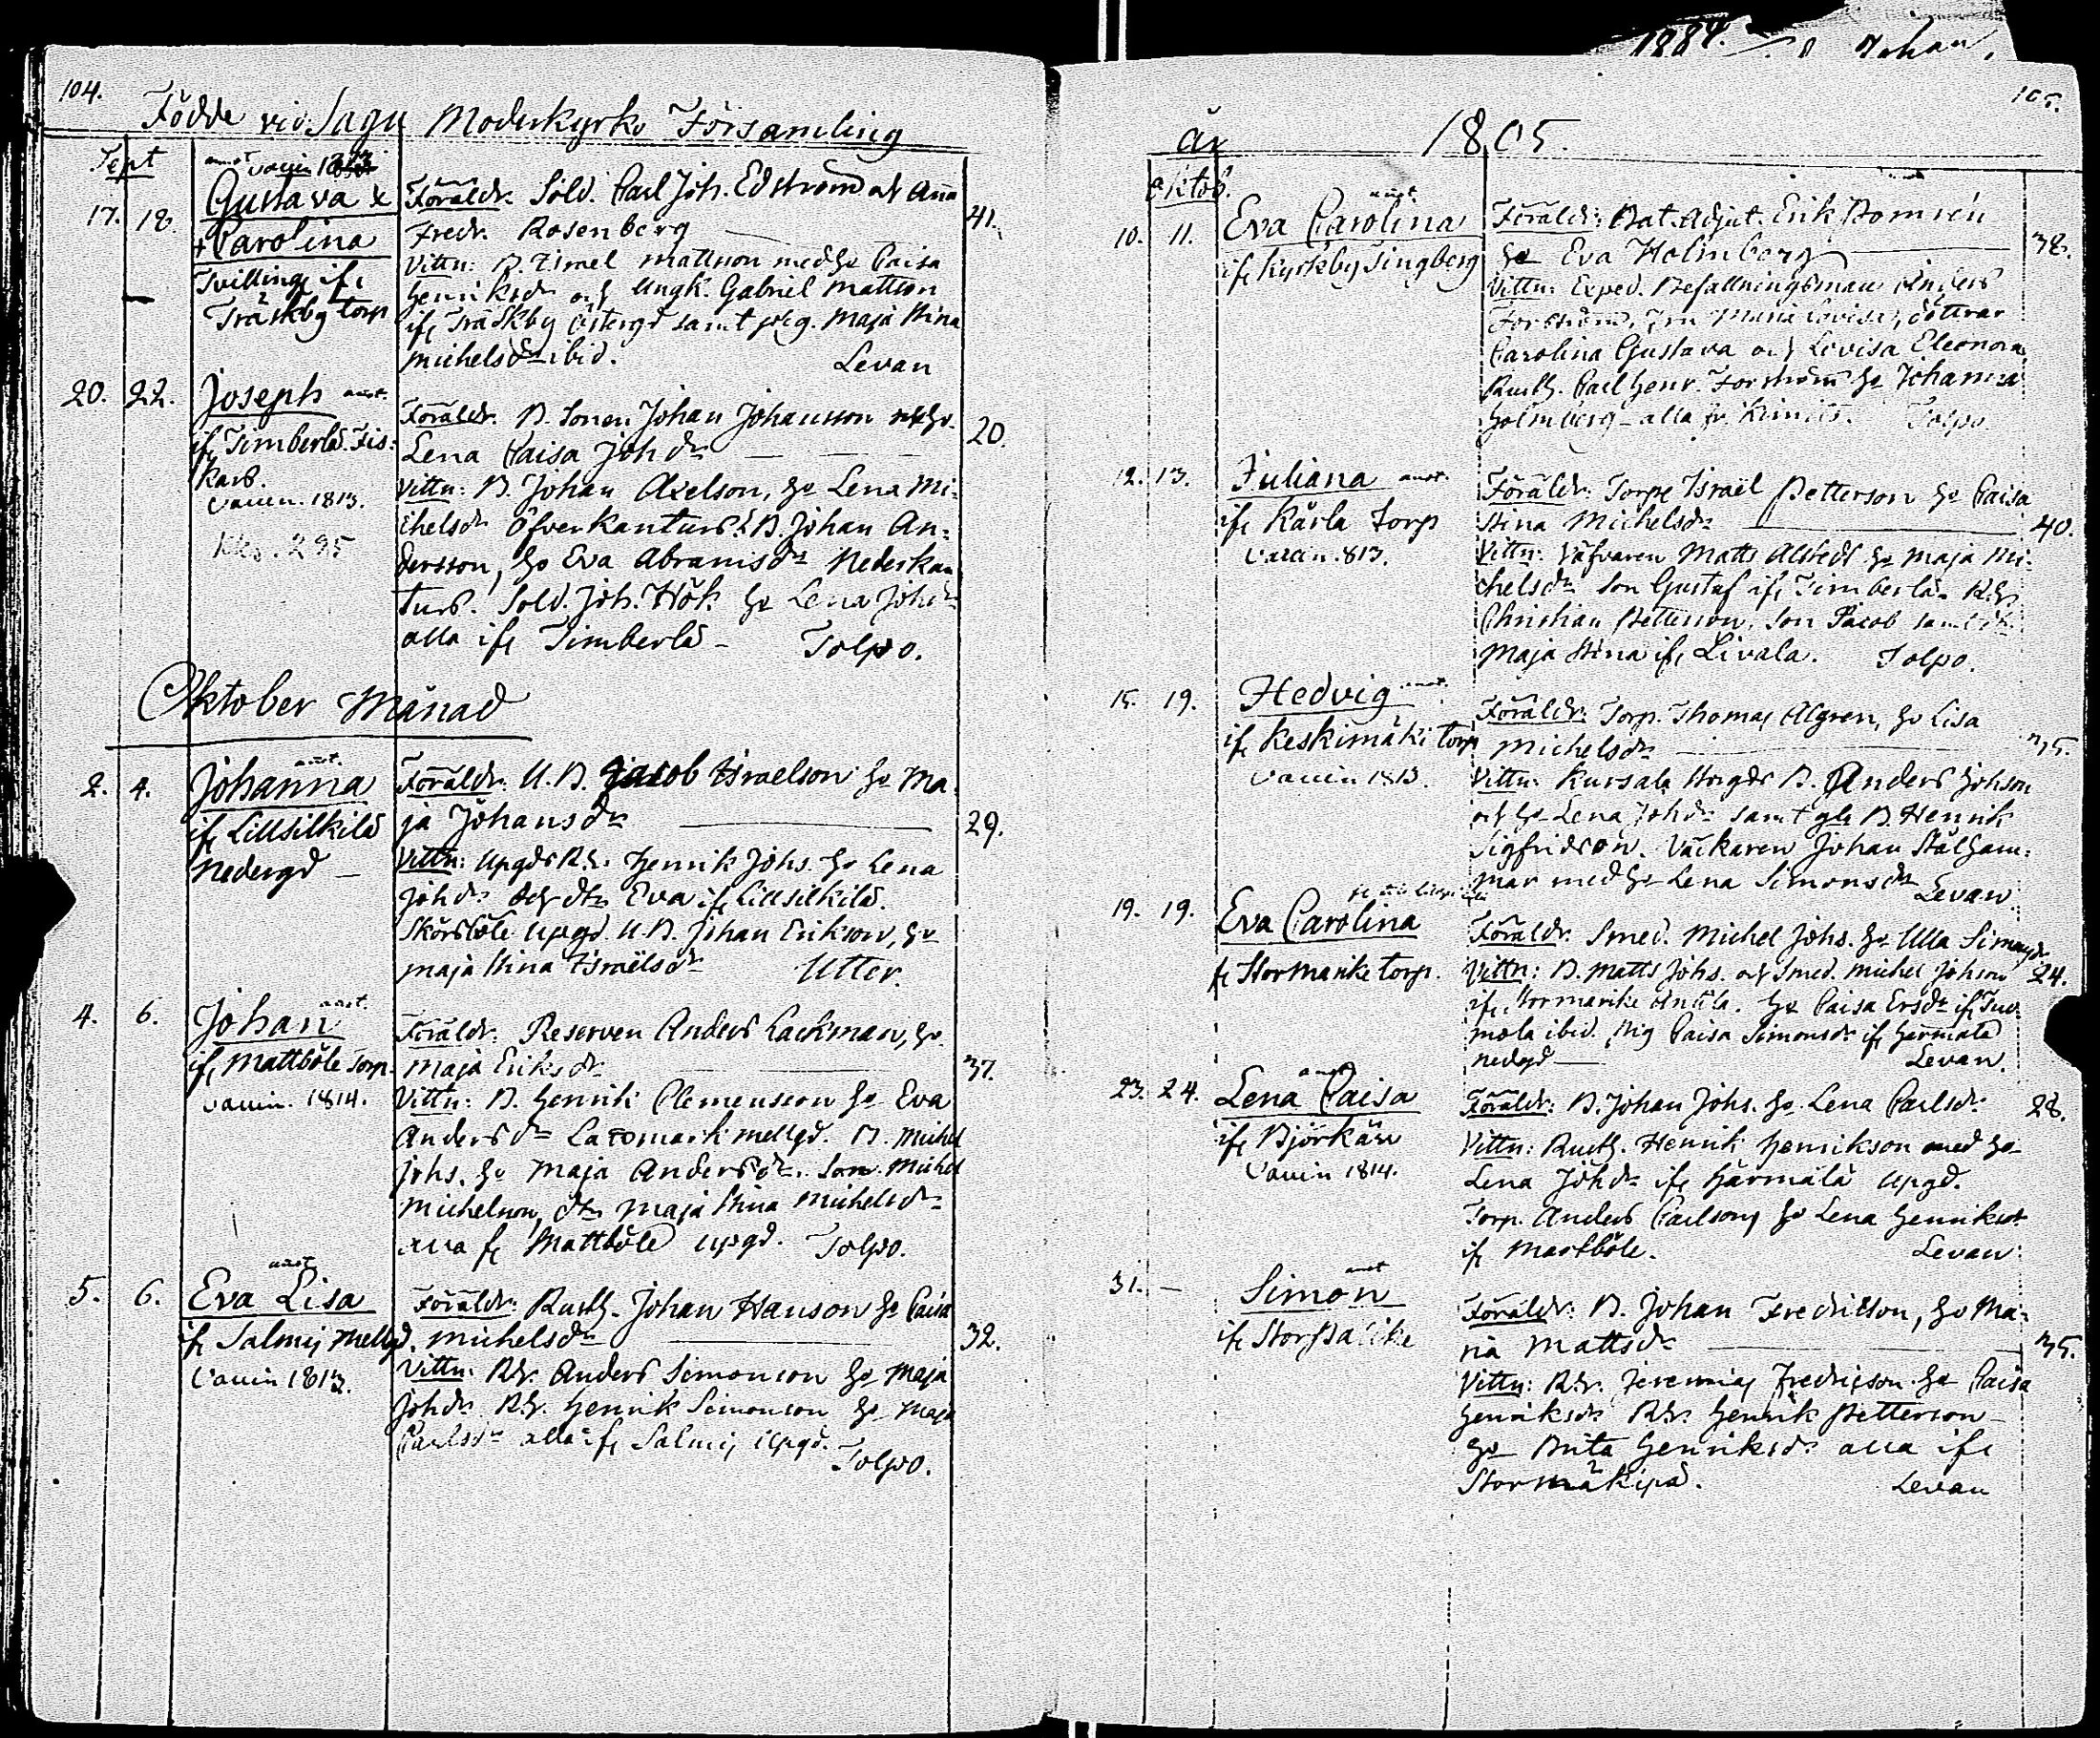 104.
Födde vid Sagu Moderkyrko Församling
Sept
17. 18.
Gustava
Carolina
Tvilling if.
Träskby torp
Föräldr. Sold. Carl Joh. Edström och Anna
Fredr. Rosenberg
41.
Vittn: B. Israel Mattson med h. Caisa
Henriksdr och Ungk. Gabriel Mattson
if. Träskby östergd samt pig. Maja Stina
Michelsdr ibid. Levan
20. 22.
Joseph
if. Timberlå Fis:
kars.
Vaccin. 1813.
295
Föräldr. B. Sonen Johan Johansson
Lena Caisa Johdr
20.
Vittn: B. Johan Axelson, h. Lena Mi:
chelsdr Öfverkanturs. B. Johan An:
dersson, h. Eva Abramsdr Nederkan
turs. Sold. Joh. Hök h. Lena Johsdr
alla if. Timberlå – Tolpo.
Oktober Månad
2. 4.
Johanna
if. Lillsilkilå
Nedergd –
Föräldr. U. B. Jacob Israelson h. Ma
ja Johansdr
29.
Vittn: Upgds Rh. Henrik Johs. h. Lena
Johdr och dtr Eva if. Lillsilkilå.
Skörsböle upgd. U. B. Johan Erikson, h.
Maja Stina Israëlsdr Utter.
4. 6.
Johan
if. Mattböle Torp.
Vaccin. 1814.
Föräldr. Reserven Anders Lackman, h.
Maja Eriksdr
37.
Vittn: B. Henrik Clemenson h. Eva
Andersdr Mellgd. B. Michel
Johs. h. Maja Andersdr. Son. Michel
Michelson, dtr Maja Stina Michelsdr
alla fr Mattböle upgd. Tolpo.
5. 6.
Eva Lisa
if. Salmis Mellgd.
Vaccin 1813.
Föräldr: Rusth. Johan Hanson h. Caisa
Michelsdr
32.
Vittn: Rh. Anders Simonson h. Maja
Johdr Rh. Henrik Simonson h. Maja
Carlsdr alla if. Salmis Upgd. Tolpo.
1884. Johan
105.
år 1805.
Oktob.
10. 11.
Eva Carolina
if. Kyrkby Singberg
Föräldr: Bat. Adjut. Erik
h. Eva Holmberg
38.
Vittn: Exped. Befallningsman Anders
Forström, Fru Maria Lovisa, döttrar
Carolina Gustava och Lovisa Eleonora
Rusth. Carl Henr. Forström h. Johanna
Holmberg – alla fr. Kimito. Tolpo.
12. 13.
Juliana
if. Kärla Torp
Vaccin. 813.
Föräldr: Torp. Israël Petterson h. Caisa
Stina Michelsdr
40.
Vittn: Väfvaren Matts h. Maja Mi:
chelsdr Son Gustaf if. Timberlå. Rh.
Christian Petterson, Son Jacob samt
Maja Stina if. Livala. Tolpo.
15. 19.
Hedvig
if. Keskimäki Torp
Vaccin 1813.
Föräldr: Torp. Thomas Algren, h. Lisa
Michelsdr
35.
Vittn: Kursala B. Anders Johson
och h. Lena Johdr samt B. Henrik
Sigfridson. Johan Stålham:
mar med h. Lena Simonsdr Levan
19. 19.
Eva Carolina
fr Stormarike torp.
Föräldr. Smed. Michel Johs. h. Ulla Simonsdr
24.
Vittn: B. Matts Johs. och Smed. Michel Johson
if. Stormarike Anttila. h. Caisa Ersdr if.
ibid. Pig Caisa Simonsdr if. Härmälä
nedgd – Levan.
23. 24.
Lena Caisa
if. Björkåsv
Vaccin 1814.
Föräldr: B. Johan Johs. h. Lena Carlsdr
28.
Vittn: Rusth. Henrik Henrikson med h.
Lena Johdr if. Härmälä upgd.
Torp. Anders Carlson, h. Lena Henriksdr
if. Mattböle. Levan.
31. –
Simon
if.
Föräldr: B. Johan Fredrikson, h. Ma:
ria Mattsdr
35.
Vittn: Rh. Jeremias Fredrikson h. Caisa
Henriksdr Rh. Henrik Petterson –
h. Brita Henriksdr alla if.
Levan